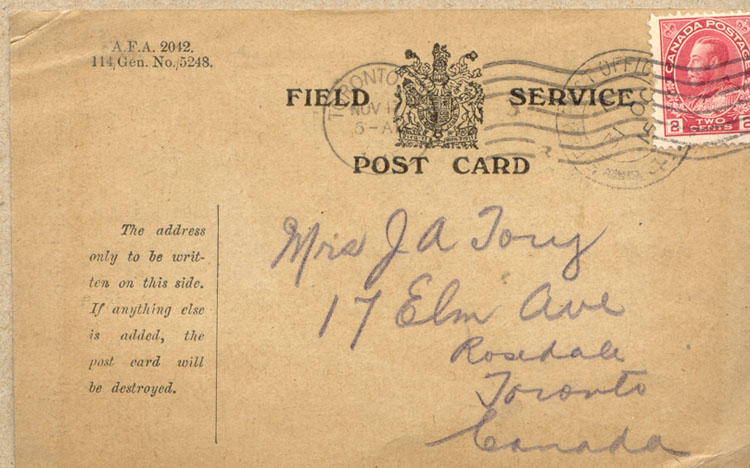 A.F.A. 2042.
114/Gen. No./5248.
FIELD SERVICE
POST CARD
TORONTO
NOV 1
5-A
OFFIC
CANADA POSTAGE
2 TWO CENTS 2
The address
only to be writ-
ten on this side.
If anything else
is added, the
post card will
be destroyed.
Mrs J A Tory
17 Elm Ave
Rosedale
Toronto
Canada